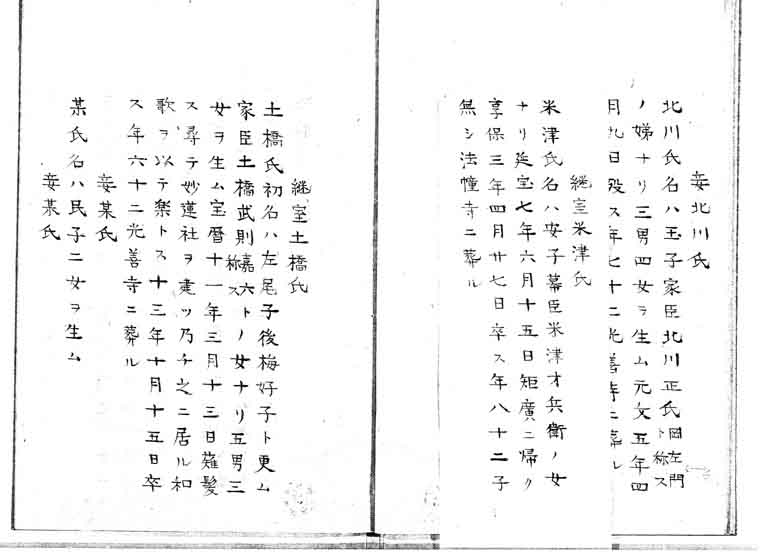 妾北川氏
北川氏名ハ玉子家臣北川正氏岡左門ト称ス
ノ娣ナリ三男四女ヲ生ム元文五年四
月九日歿ス年七十二光善寺ニ葬ル
継室米津氏
米津氏名ハ安子幕臣米津才兵衛ノ女
ナリ延宝七年六月十五日矩廣ニ帰ク
享保三年四月廿七日卒ス年八十二子
無シ法幢寺ニ葬ル
継室土橋氏
土橋氏初名ハ左尾子後梅好子ト更ム
家臣土橋武則嘉六ト称スノ女ナリ五男三
女ヲ生ム宝暦十一年三月十三日薙髪
ス尋テ妙蓮社ヲ建ツ乃チ之ニ居ル和
歌ヲ以テ楽トス十三年十月十五日卒
ス年六十二光善寺ニ葬ル
妾某氏
某氏名ハ民子二女ヲ生ム
妾某氏